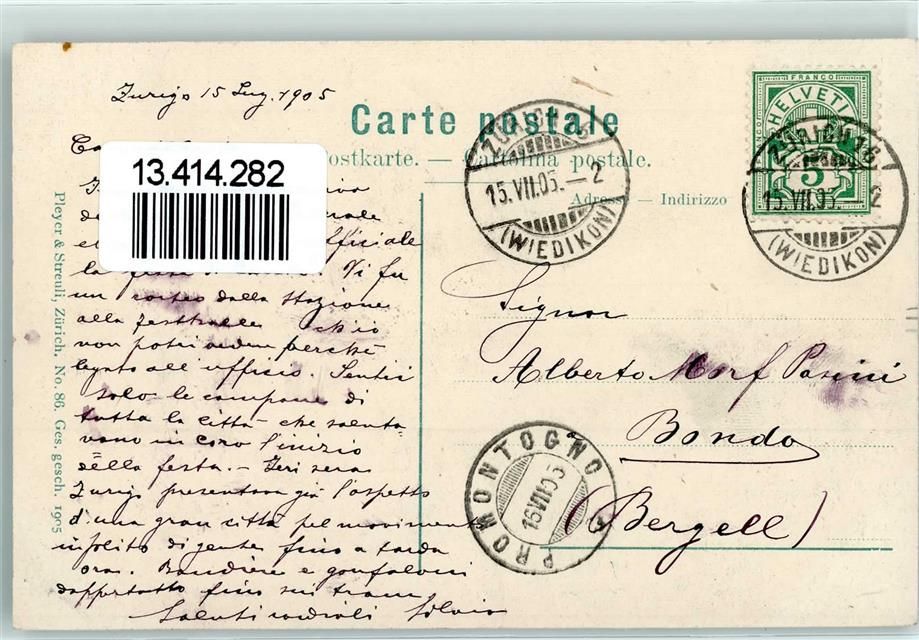 Zurigo 15 Lug. 1905
Carte postale
Postkarte. — Cartolina postale.
Adresse — Indirizzo
13.414.282
FRANCO
HELVETIA
5
ZÜRICH 16
15.VII.05.–2
(WIEDIKON)
ZÜRICH 16
15.VII.05.–2
(WIEDIKON)
Signor
Alberto Morf Pasini
Bondo
(Bergell)
PROMONTOGNO
16.VII.05
ufficiale
la festa di Vi fu
un corteo dalla Stazione
alla festhalle ch'io
non potei vedere perchè
legato all'ufficio. Sentii
solo le campane di
tutta la città che saluta-
vano in coro l'inizio
della festa. — Ieri sera
Zurigo presentava già l'aspetto
d'una gran città pel movimento
insolito di gente fino a tarda
ora. Bandiere e gonfaloni
dappertutto fino sui tram.
Saluti cordiali Silvio
Pleyer & Streuli, Zürich. No. 86. Ges. gesch. 1905